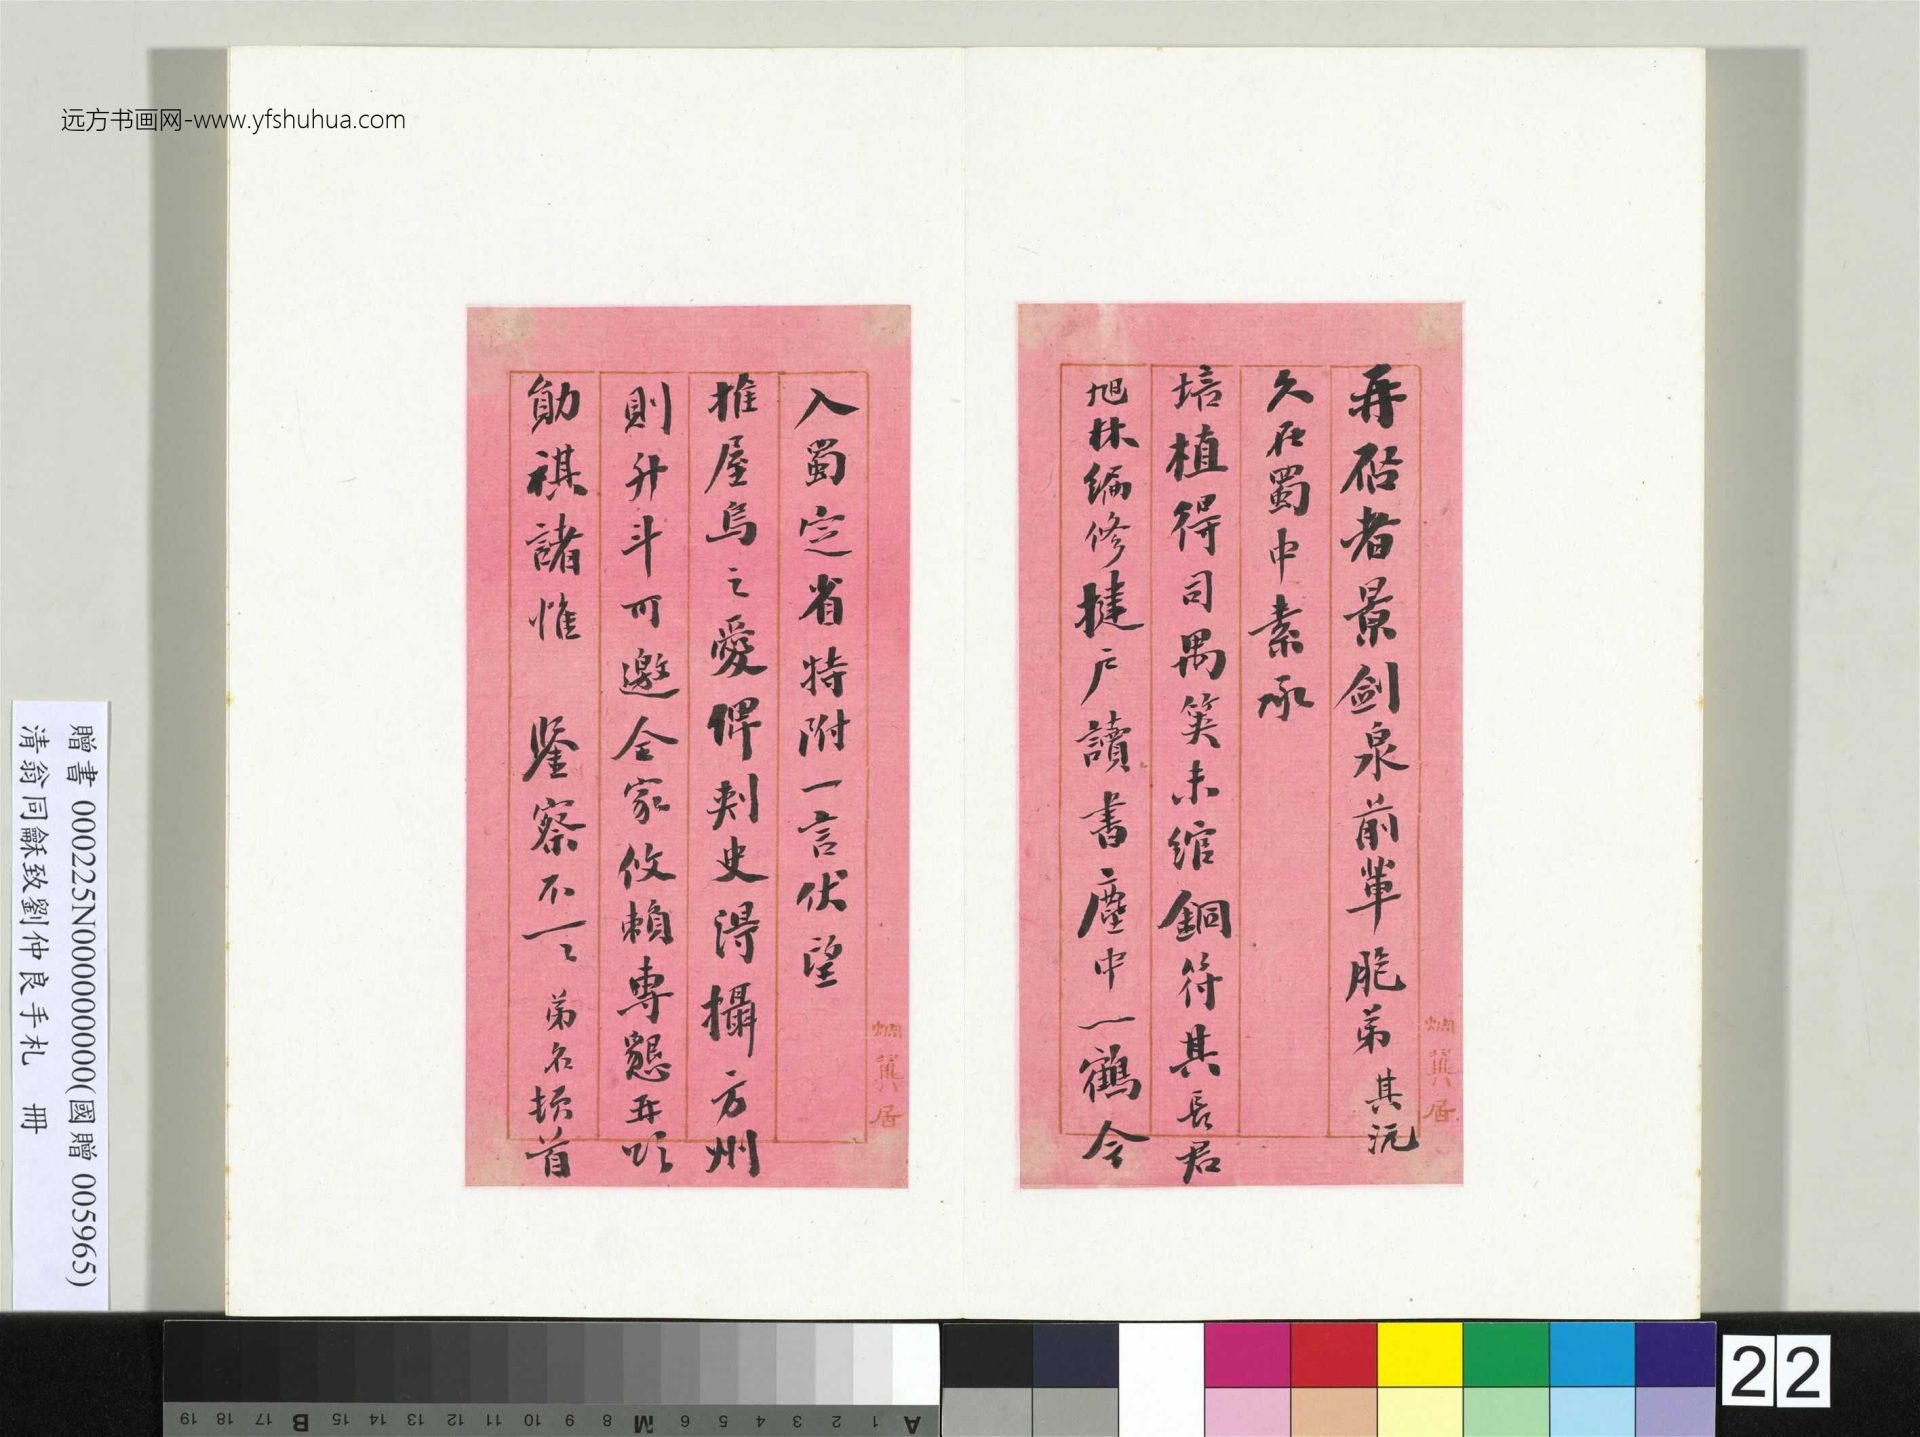 远方书画网-www.yfshuhua.com
再啟者景劍泉前輩胞弟其沅
久在蜀中素承
培植得司禺筴未綰銅符其長君
旭林編修揵户讀書塵中一鶴今
入蜀定省特附一言伏望
推屋烏之愛俾刺史得攝方州
則升斗可邀全家攸賴專懇再頌
勛祺諸惟 鑒察不一〻 弟名頓首
居
居
贈書 000225N000000000(國贈 005965)
清翁同龢致劉仲良手札 冊
A 1 2 3 4 5 6 M 8 9 10 11 12 13 14 15 B 17 18 19
22